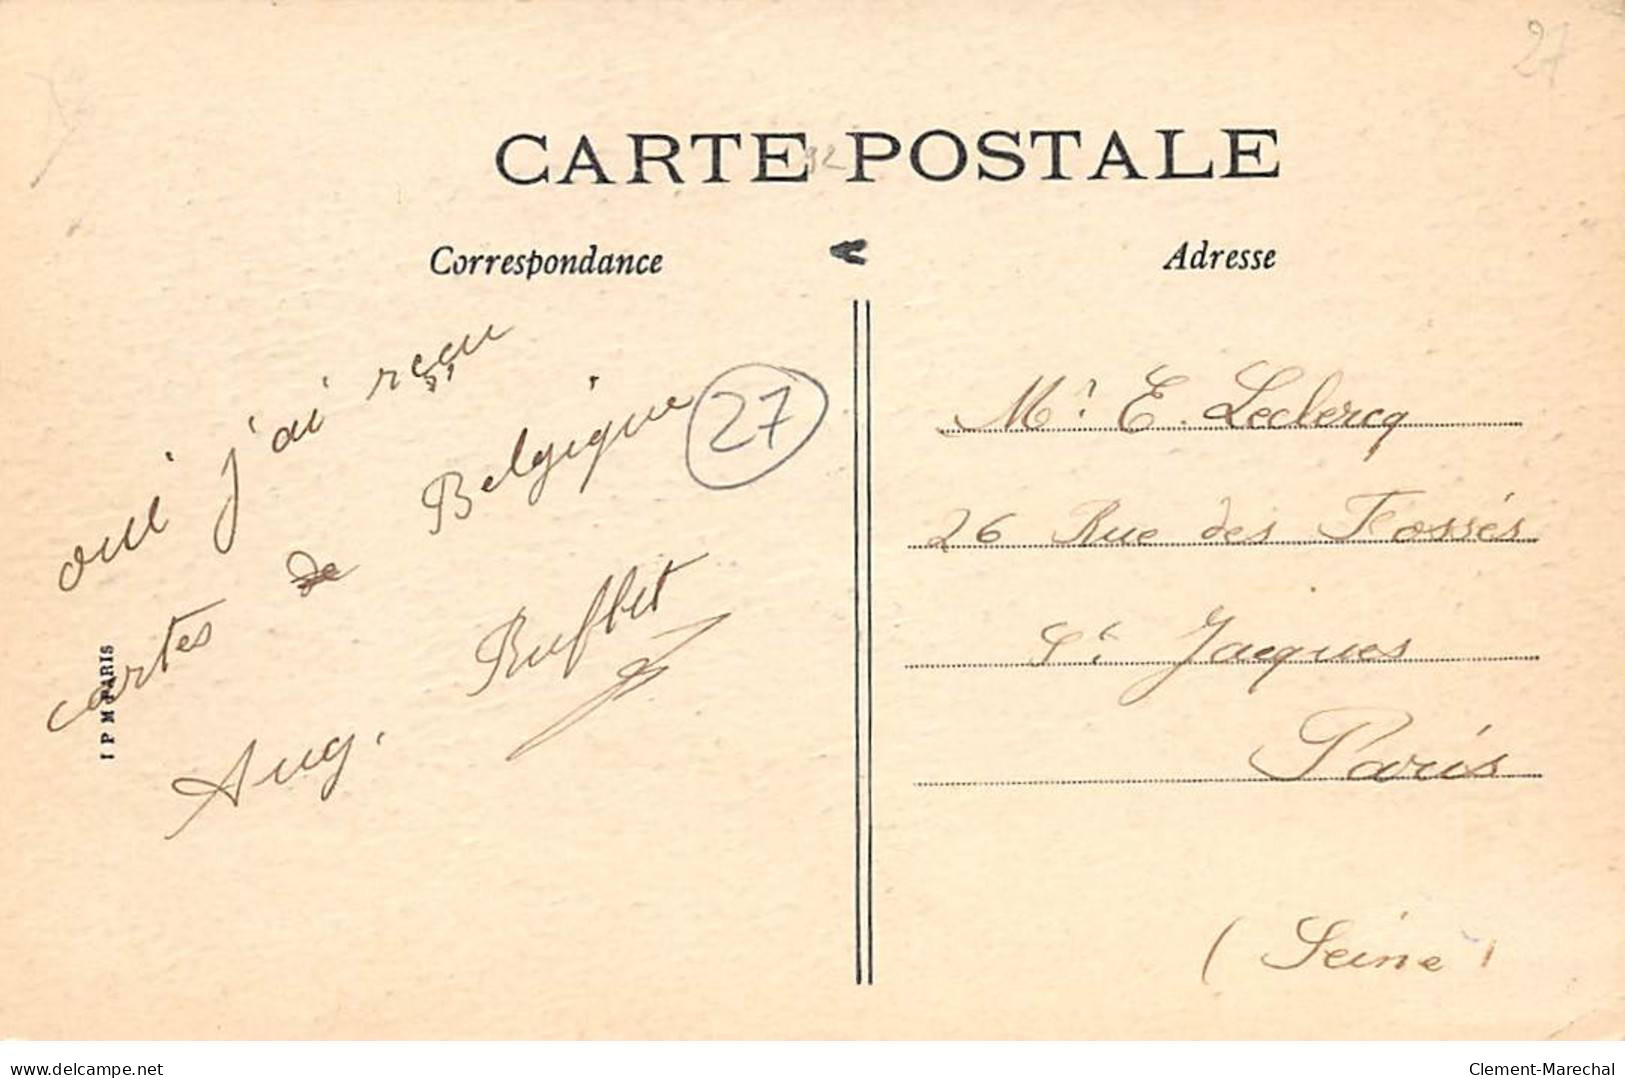 27
CARTE POSTALE
92
Correspondance
Adresse
oui j'ai reçu
cartes de Belgique
27
Aug.
I P M PARIS
Mr. E. Leclercq
26 Rue des Fossés
St. Jacques
Paris
(Seine)
delcampe.net
Clement-Marechal